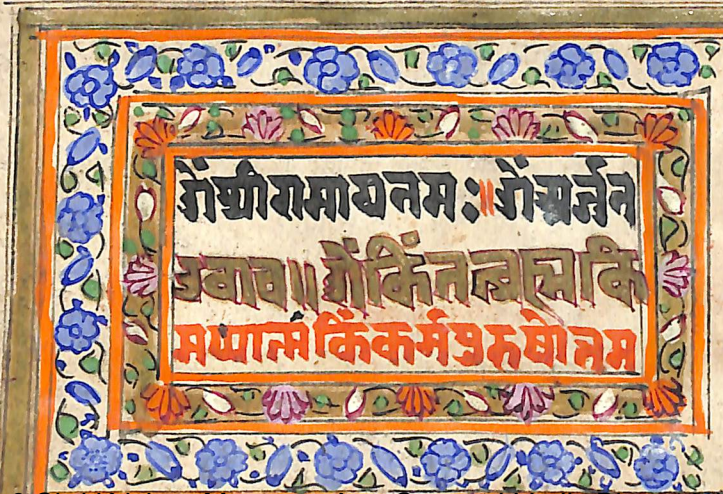 ॐश्रीरामायनमः॥ॐअर्जुन
उवाच॥ॐकिंतद्ब्रह्मकि
मध्यात्मंकिंकर्मपुरुषोत्तम